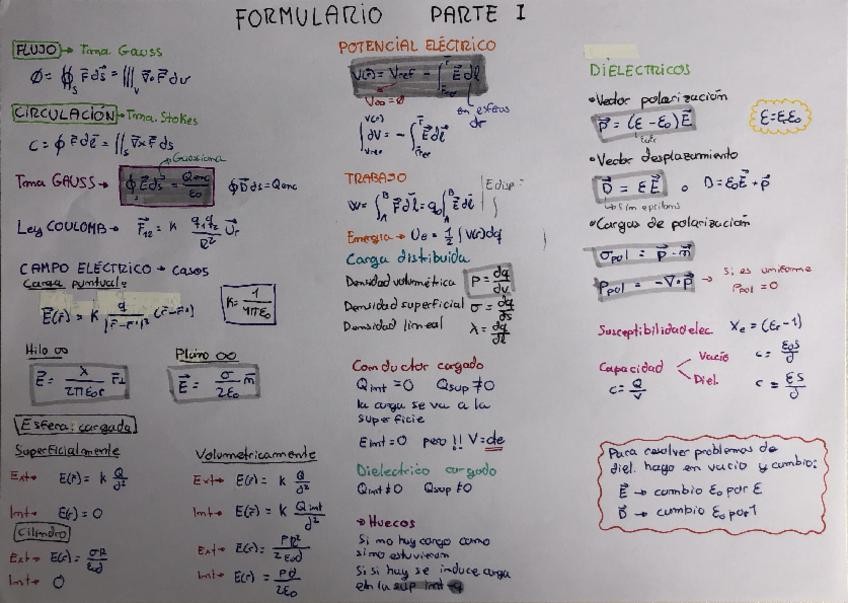 FORMULARIO PARTE I
FLUJO → Tma. Gauss
Φ = ∯_S F⃗ ds⃗ = ∭_V ∇·F⃗ dv
CIRCULACIÓN → Tma. Stokes
C = ∮ F⃗ dl⃗ = ∬_S ∇×F⃗ ds
Gaussiana
Tma GAUSS → ∮ E⃗ ds⃗ = Qenc/ε₀ ∮ D⃗ ds = Qenc
Ley COULOMB → F⃗₁₂ = K q₁q₂/R² u⃗r
CAMPO ELÉCTRICO → CASOS
Carga puntual:
E⃗(r⃗) = K q/|r⃗-r⃗'|³ (r⃗-r⃗')
K = 1/4πε₀
Hilo ∞
E⃗ = λ/2πε₀r r⃗⊥
Plano ∞
E⃗ = σ/2ε₀ n⃗
Esfera: cargada
Superficialmente
Ext → E(r) = K Q/d²
Int → E(r) = 0
Volumetricamente
Ext → E(r) = K Q/d²
Int → E(r) = K Qint/d²
Cilindro
Ext → E(r) = σR/ε₀d
Int → 0
Ext → E(r) = ρR²/2ε₀d
Int → E(r) = ρd/2ε₀
POTENCIAL ELÉCTRICO
V(r⃗) = Vref - ∫ E⃗ dl⃗
V∞ = 0
en esferas
dr
∫ dV = - ∫ E⃗ dl⃗
TRABAJO
W = ∫_A^B F⃗ dl⃗ = q₀ ∫_A^B E⃗ dl⃗
E disp:
Energia → Ue = 1/2 ∫ V(r) dq
Carga distribuida
Densidad volumétrica ρ = dq/dv
Densidad superficial σ = dq/ds
Densidad lineal λ = dq/dl
Conductor cargado
Qint = 0 Qsup ≠ 0
la carga se va a la
superficie
Eint = 0 pero !! V = cte
Dielectrico cargado
Qint ≠ 0 Qsup ≠ 0
→ Huecos
Si no hay carga como
si no estuvieran
Si si hay se induce carga
en la sup int -q
DIELECTRICOS
• Vector polarización
p⃗ = (ε - ε₀) E⃗
ε = εrε₀
• Vector desplazamiento
D⃗ = ε E⃗ o D = ε₀E⃗ + p⃗
• Cargas de polarización
σpol = p⃗ · n⃗
ρpol = -∇·p⃗ → Si es uniforme
ρpol = 0
Susceptibilidad elec. Xe = (εr - 1)
Capacidad
C = Q/V
Vacío C = ε₀S/d
Diel. C = εS/d
Para resolver problemas de
diel. hago en vacio y cambio:
E⃗ → cambio ε₀ por ε
D⃗ → cambio ε₀ por 1